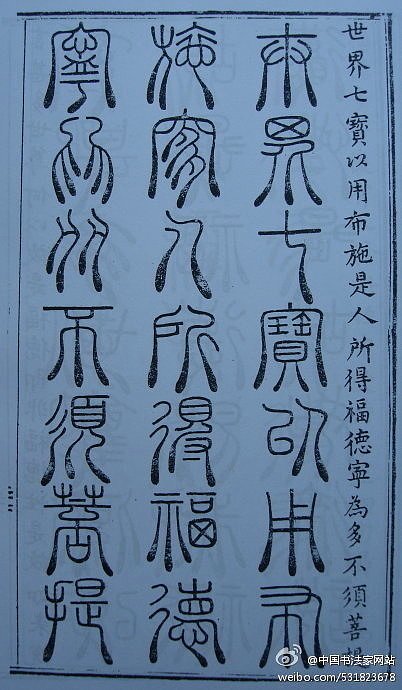 世界七寶以用布施是人所得福德寧為多不須菩提
世界七寶以用布
施是人所得福德
寧為多不須菩提
@中国书法家网站
weibo.com/531823678